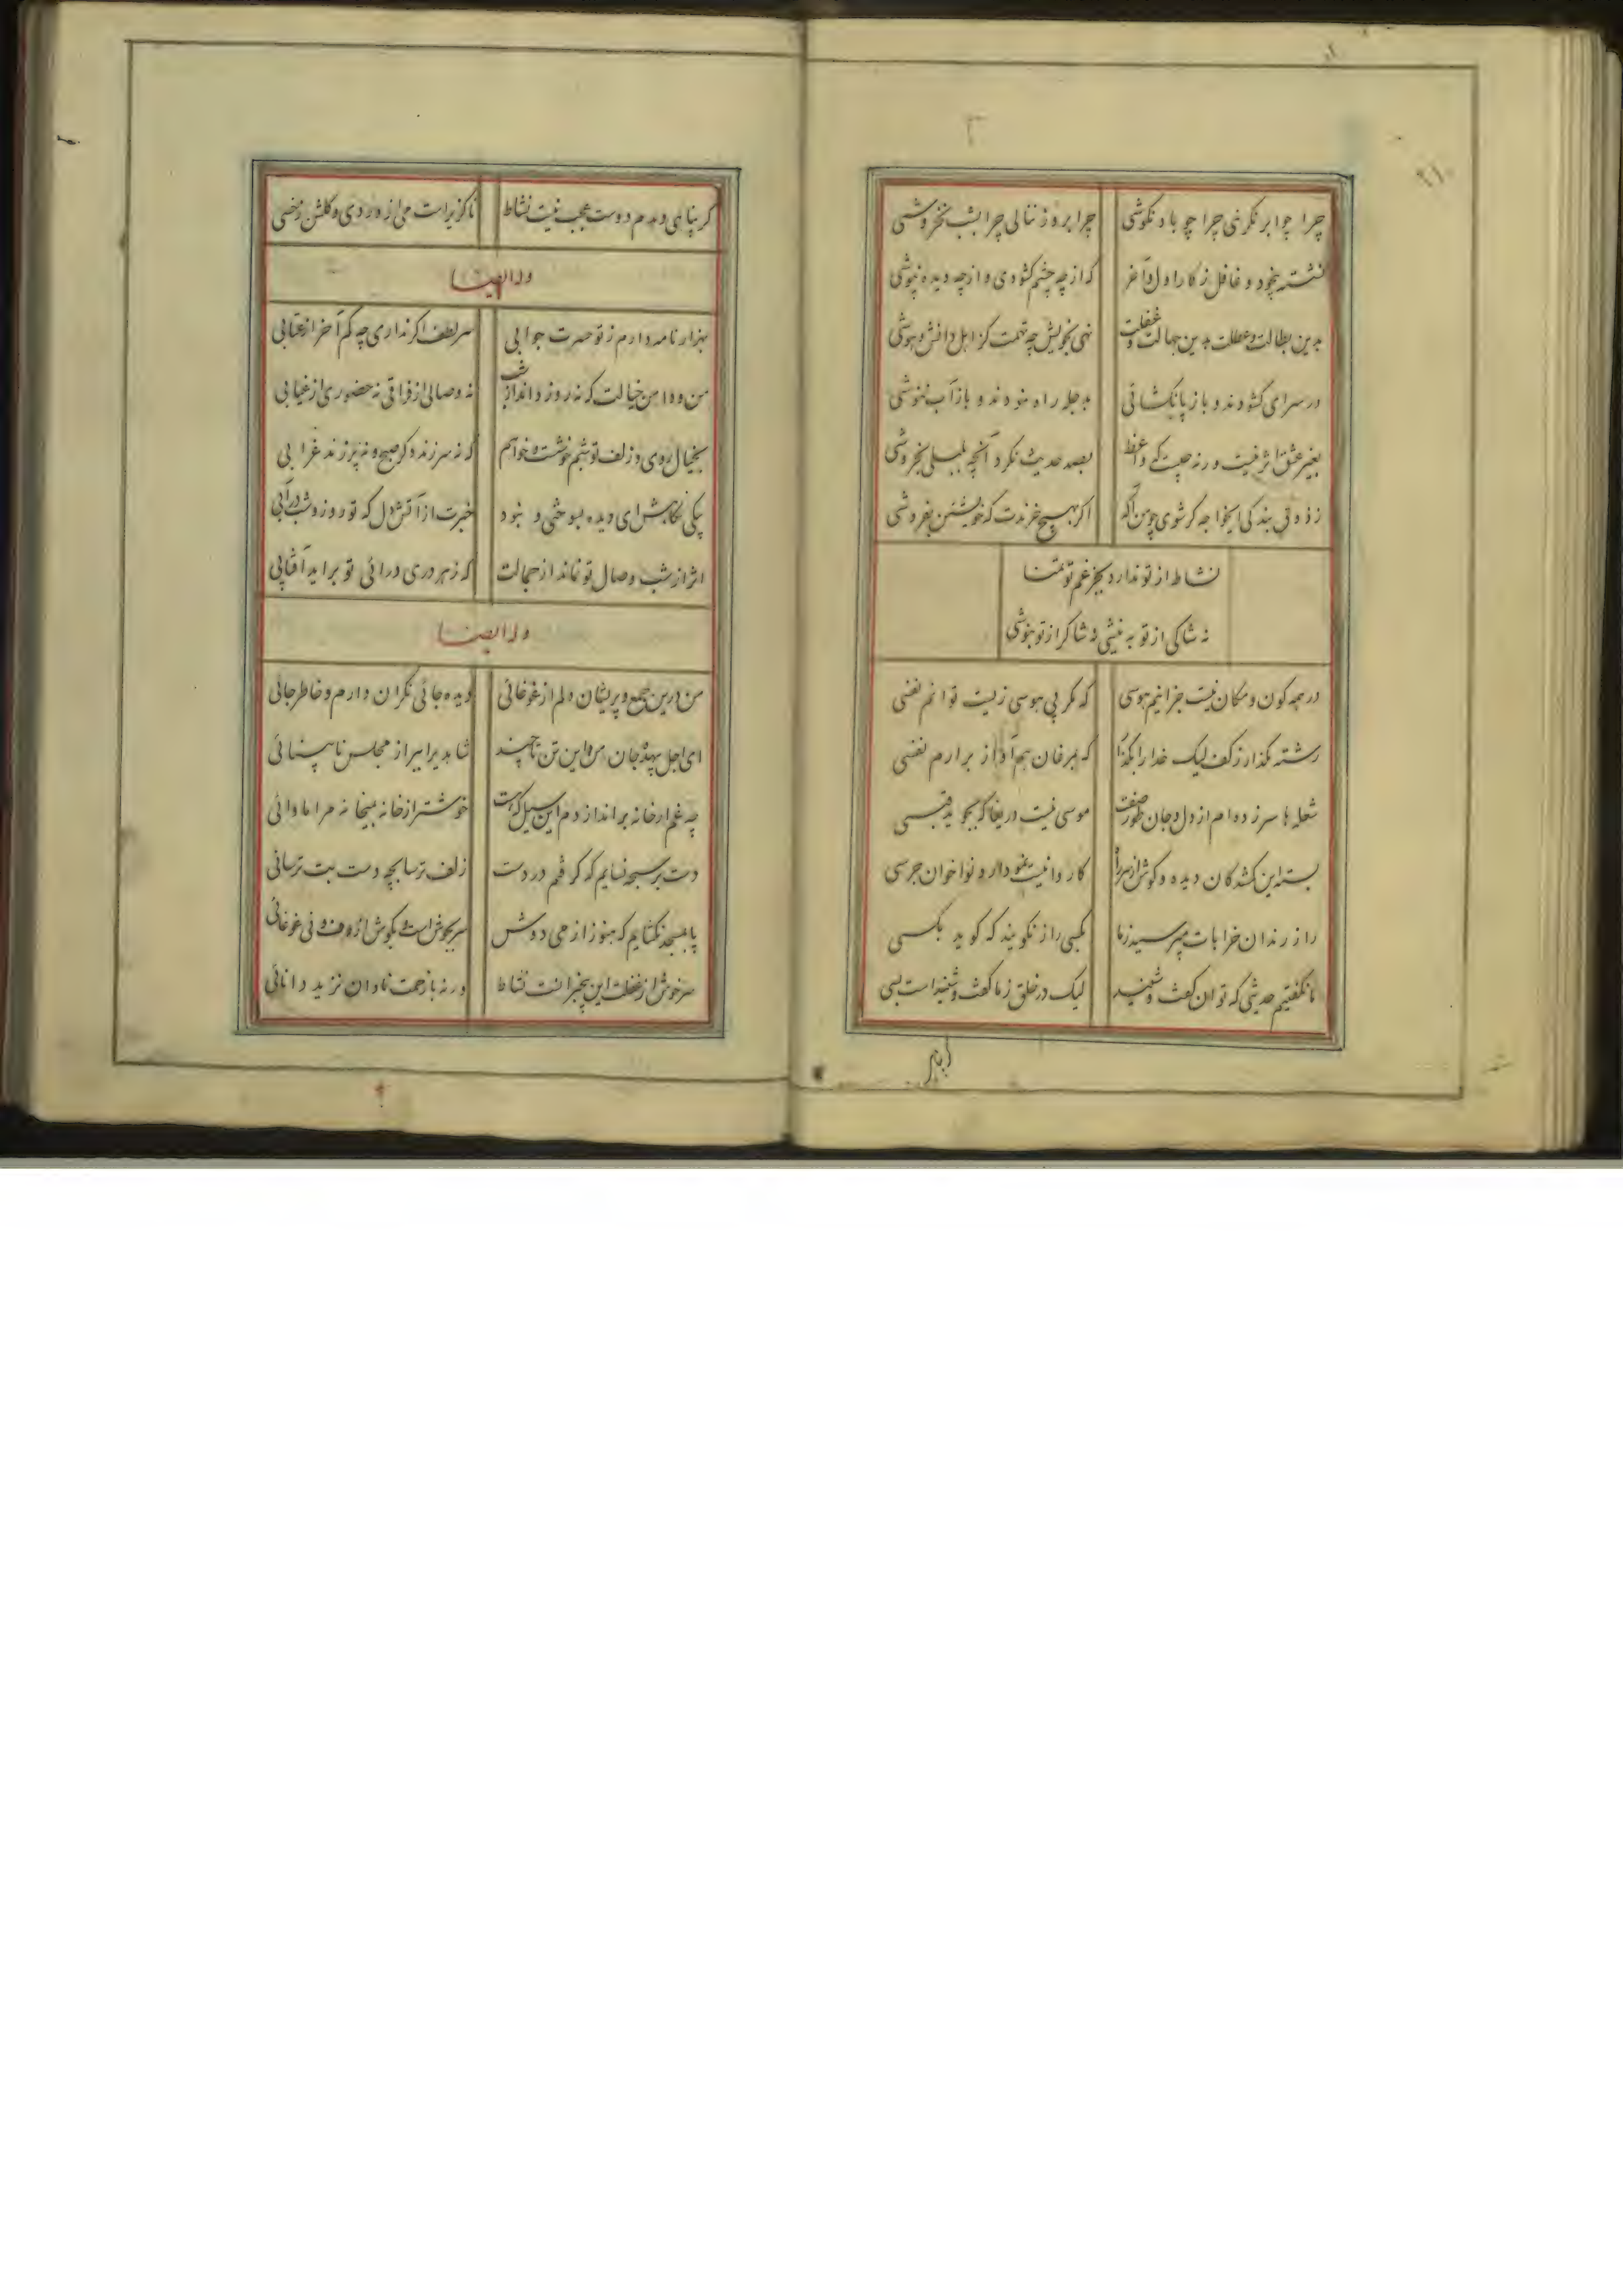 چرا چو ابر نگرئی چرا چو باد نکوشی چرا بروز ننالی چرا بشب نخروشی
نشسته بیخود و غافل ز کار اول و آخر که از چه چشم گشودی و از چه دیده بپوشی
بدین بطالت و عطلت بدین جهالت و غفلت نهی بخویش چه تهمت کز اهل دانش و هوشی
در سرای گشودند و باز پا نگشائی بدجله راه نمودند و باز آب ننوشی
بغیر عشق اثر نیست ورنه چیست که واعظ بصد حدیث نکرد آنچه بلبلی بخروشی
ز ذوق بندگی ایخواجه گر شوی چو من آگه اگر بهیچ خرندت که خویشتن بفروشی
نشاط از تو ندارد بجز غم تو تمنا
نه شاکی از تو به نیشی نه شاکر از تو بنوشی
در همه کون و مکان نیست جز اینم هوسی که مگر بی هوسی زیست توانم نفسی
رشته مگذار ز کف لیک خدا را بگذار که بمرغان هم آواز برارم نفسی
شعله ها سر زده ام از دل و جان طور صفت موسی نیست دریغا که بجوید قبسی
بسته این گمشدگان دیده و گوش از سر راه کاروانیست نمودار و نواخوان جرسی
راز رندان خرابات مپرسید ز ما بکسی راز نگویند که گوید بکسی
ما نگفتیم حدیثی که توان گفت و شنید لیک در خلق ز ما گفت و شنید است بسی
گر بنا هی و همدم دوست عجب نیست نشاط ناگزیر است می از وردی و گلشن ز خسی
وله ایضا
هزار نامه دارم ز تو حسرت جوابی سر لطف اگر نداری چه کم آخر از عتابی
من و دامن خیالت که نه روز داند از شب نه وصالی از فراقی نه حضوری از غیابی
بخیال روی و زلف تو شبم خوشست و خواهم که نه سر زند دگر صبح و نه پر زند غرابی
یکی نگاهش ای دیده بسوختی و نبود خبرت از آتش دل که تو روز و شب در آبی
اثر از شب وصال تو نماند از جمالت که ز هر دری درائی تو براید آفتابی
وله ایضا
من درین جمع و پریشان دلم از غوغائی دیده جائی نگران دارم و خاطر جائی
ای اجل بیهده جان من و این تن تا چند شاهدی را ببر از مجلس نابینائی
چه غم ار خانه براندازدم این سیل که هست خوشتر از خانه بمیخانه مرا ماوائی
دست بر سبحه نسایم که گرفتم در دست زلف ترسابچه دست بت ترسائی
پا بمسجد نگشایم که هنوز از می دوش سر بجوش است و بگوش از دف و نی غوغائی
سرخوش از غفلت این بیخبرانست نشاط ورنه با زحمت نادان نزید دانائی